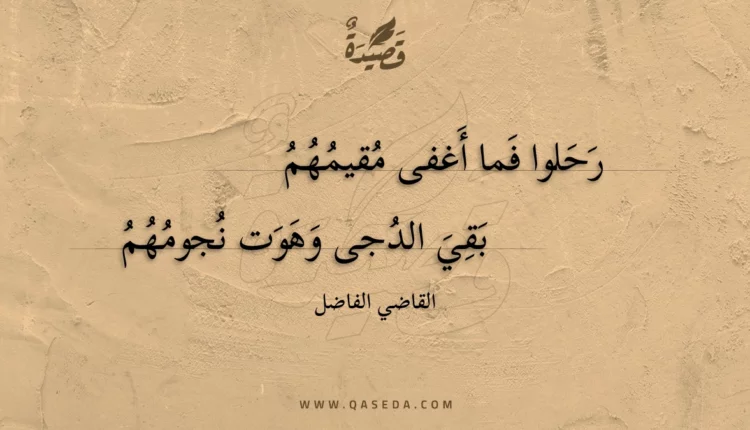 قَصِيْدَةٌ
رَحَلوا فَما أَغفى مُقيمُهُمُ
بَقِيَ الدُجى وَهَوَت نُجومُهُمُ
القاضي الفاضل
WWW.QASEDA.COM